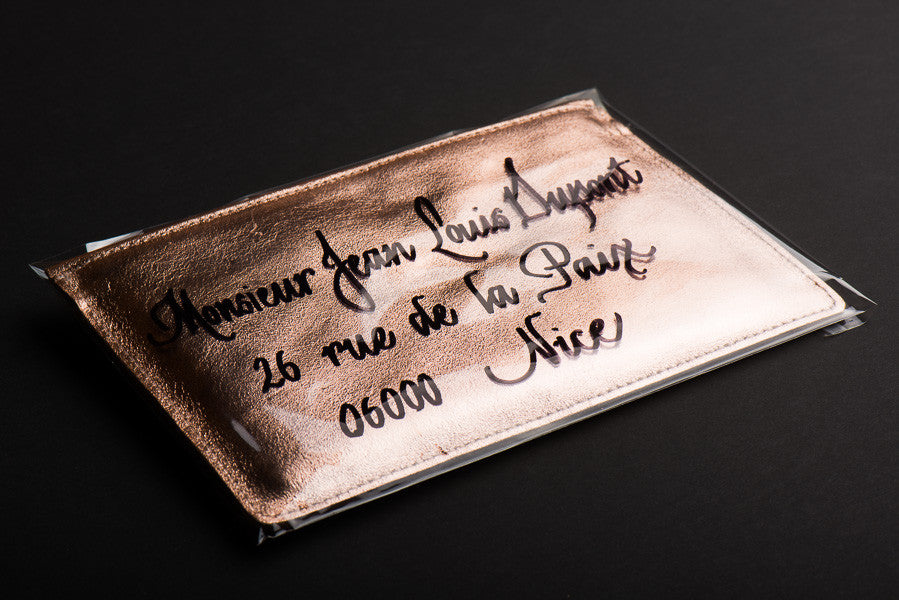 Monsieur Jean Louis Dupont
26 rue de la Paix
06000 Nice